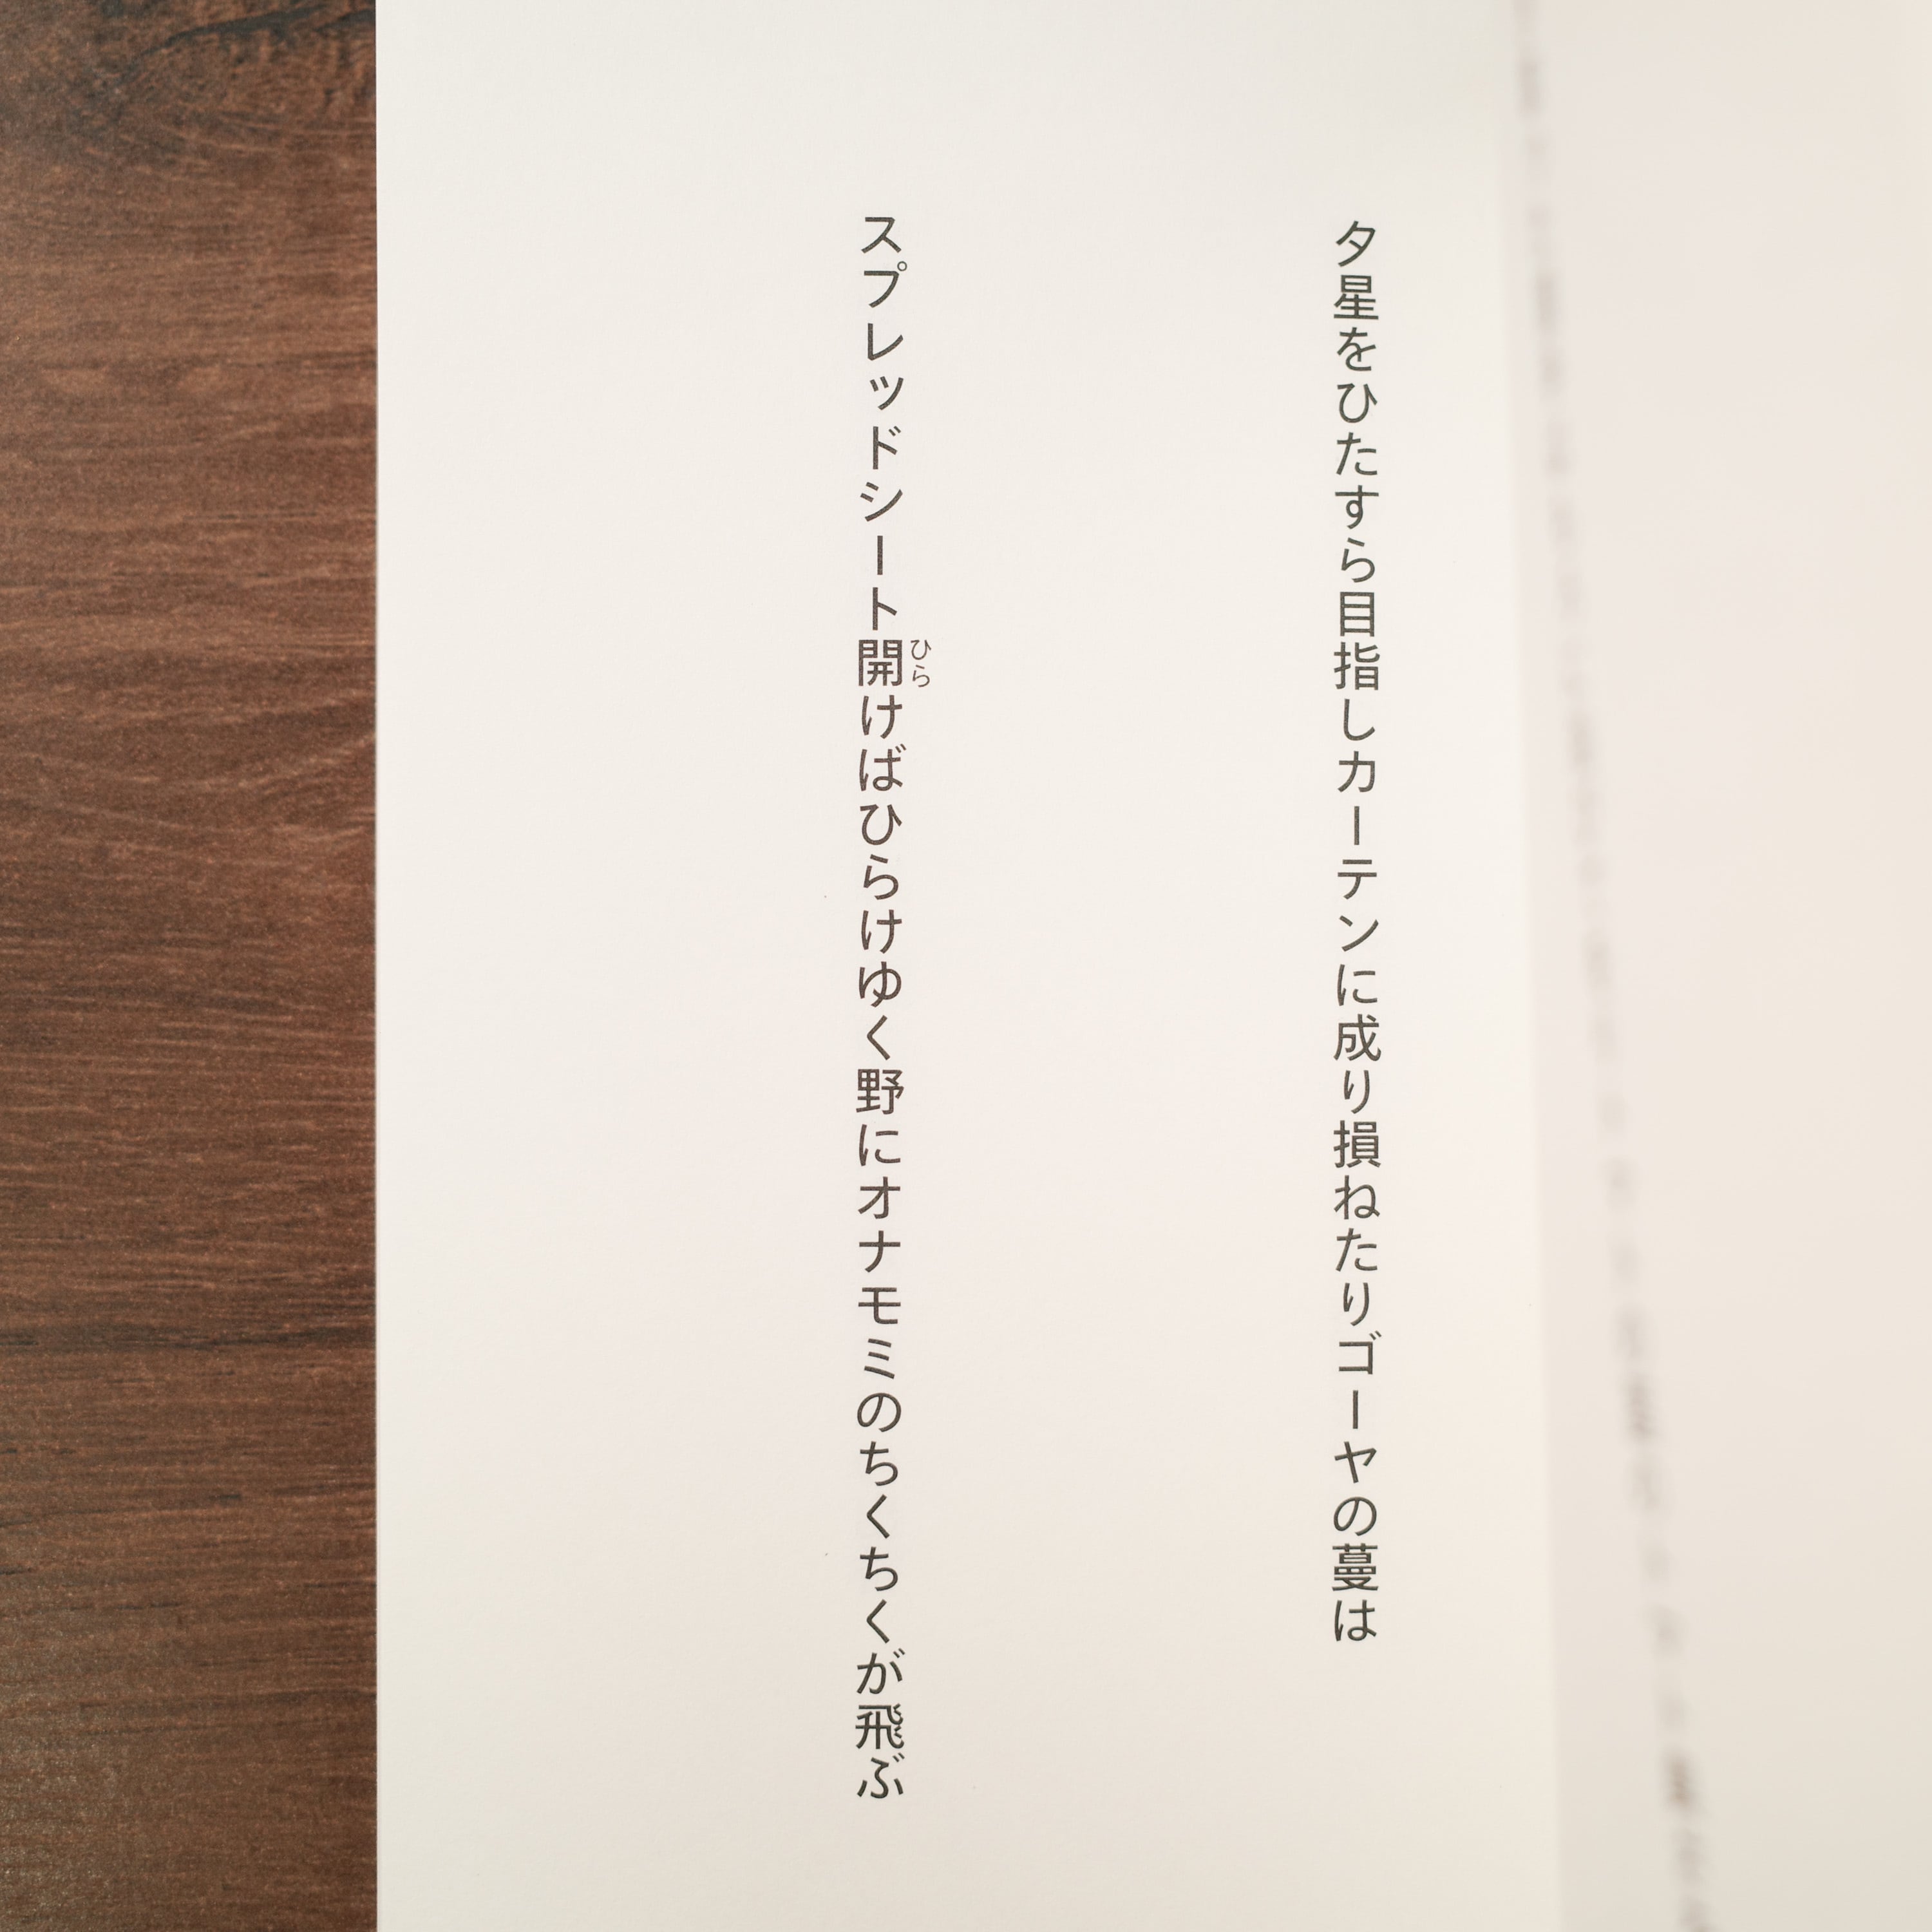 夕星をひたすら目指しカーテンに成り損ねたりゴーヤの蔓は
スプレッドシート開けばひらけゆく野にオナモミのちくちくが飛ぶ
ひら